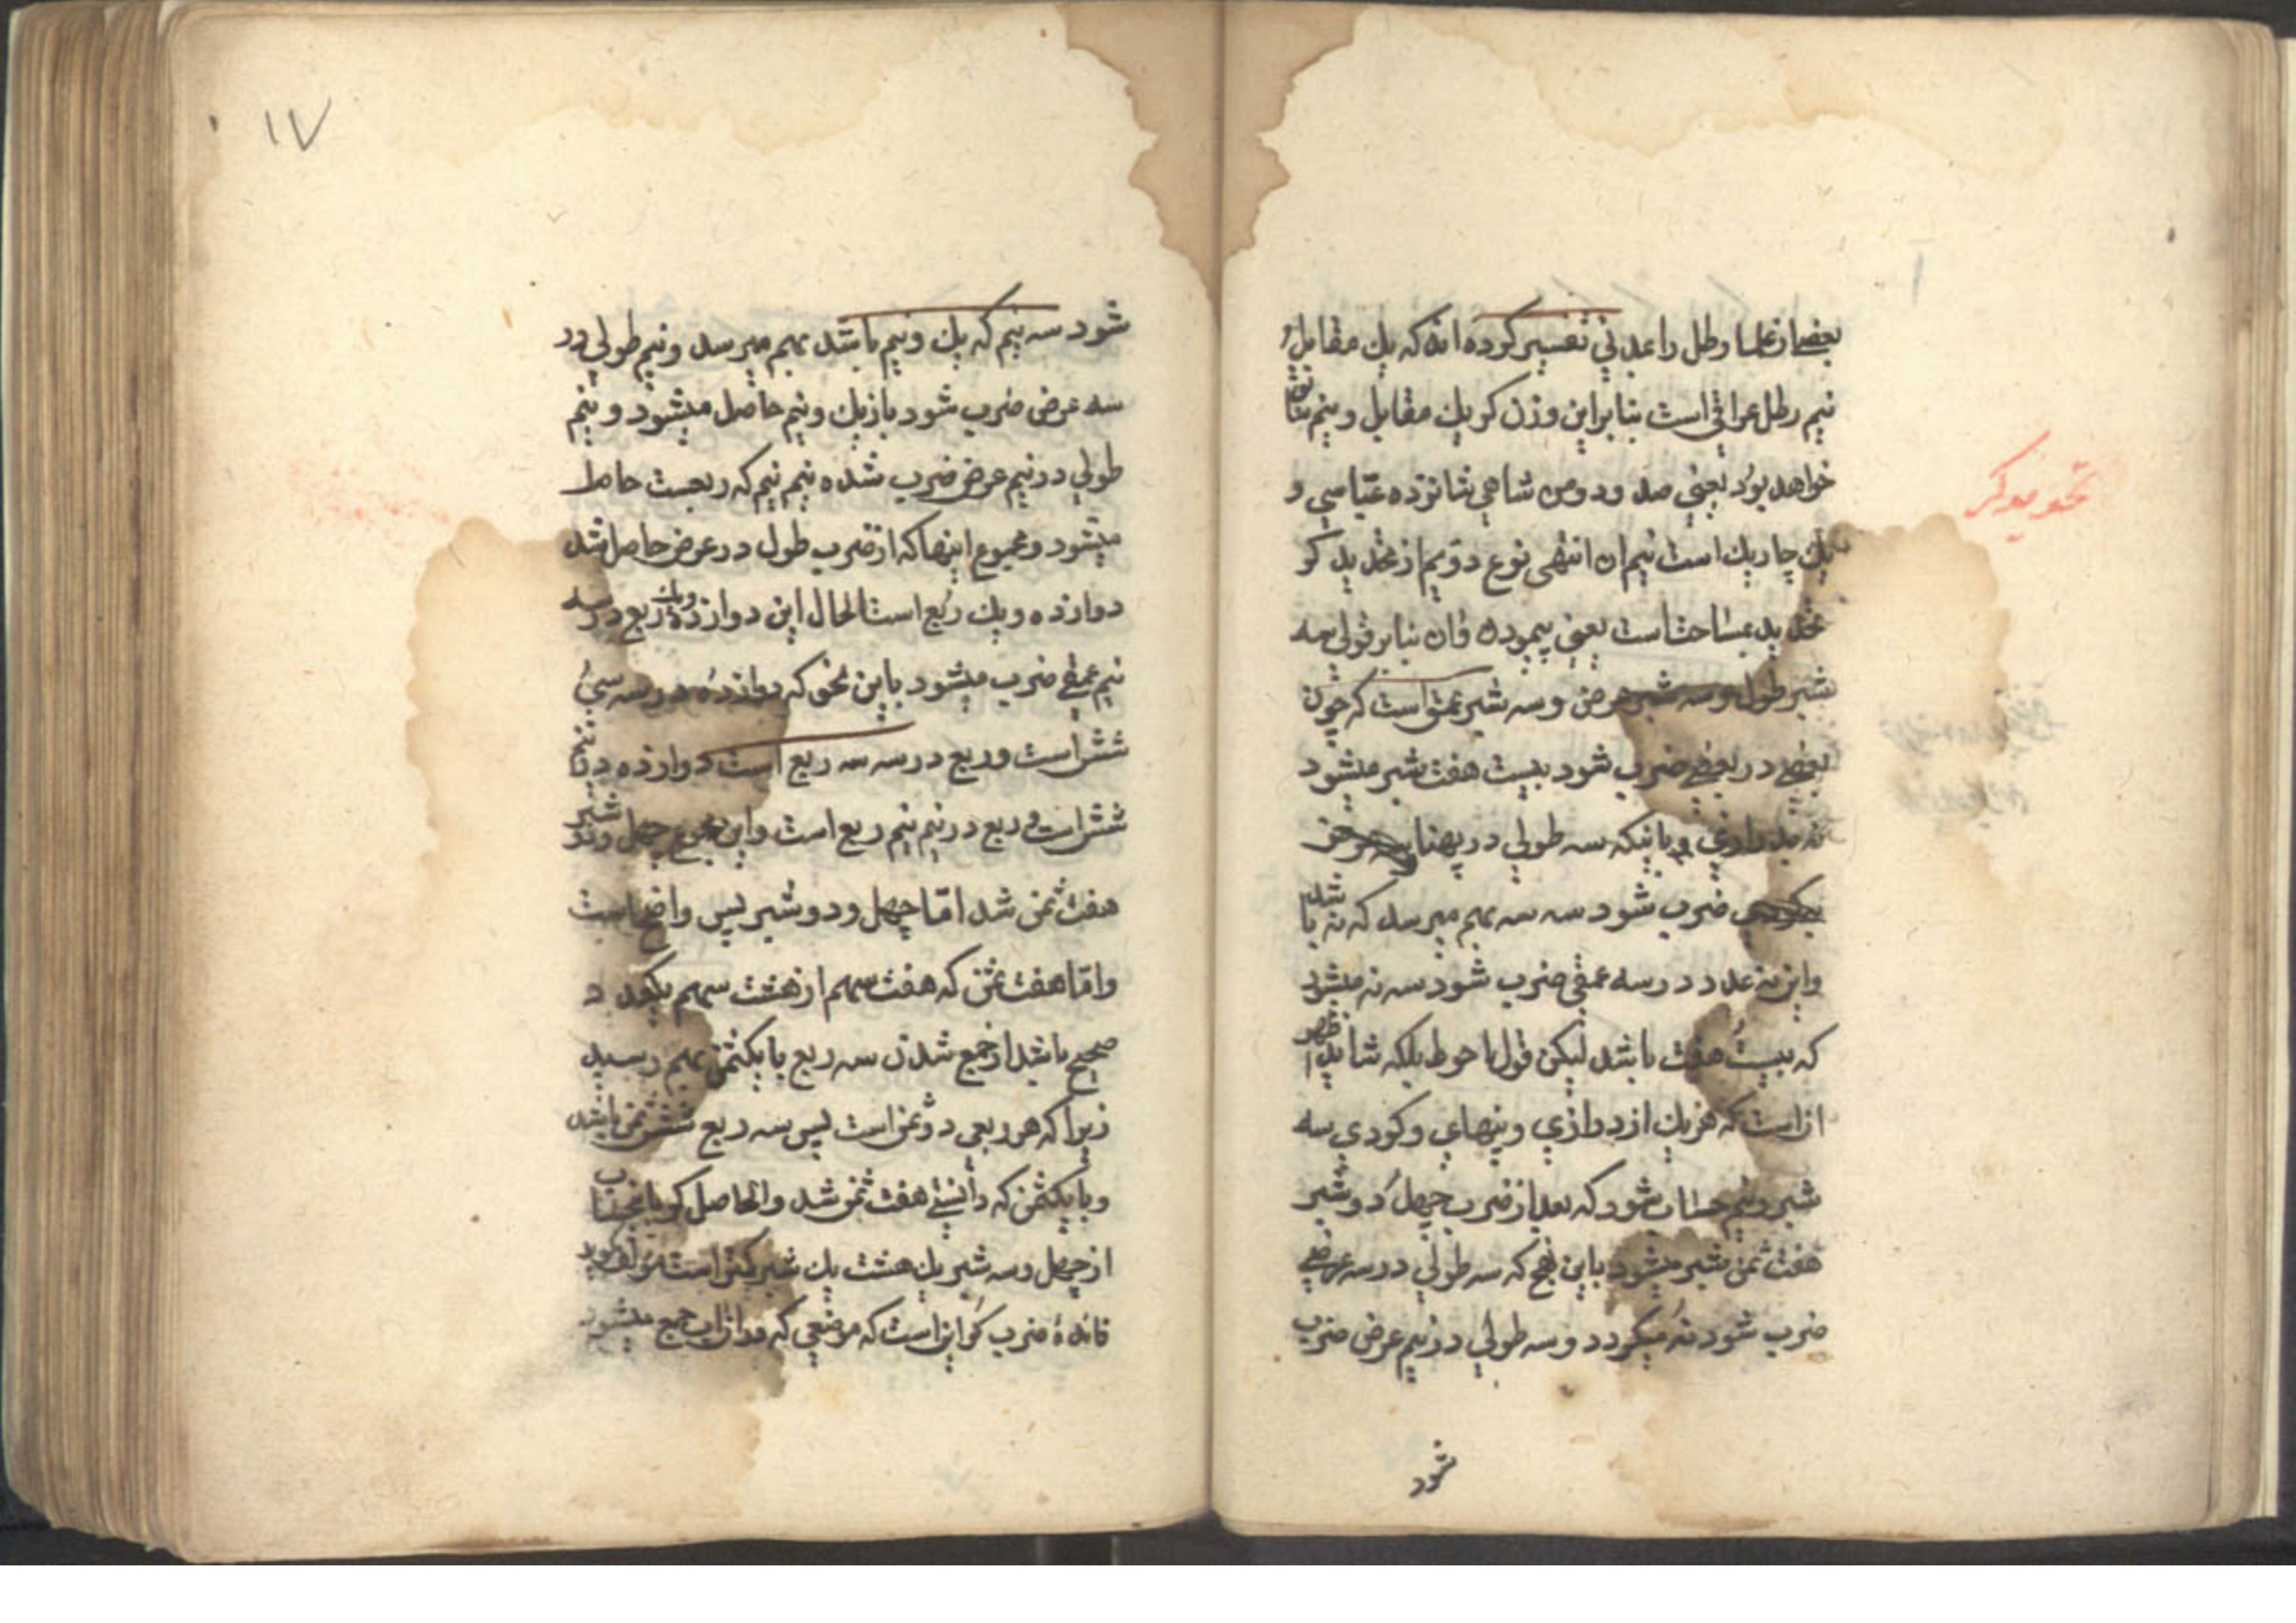 بعضی از علما رطل را عدنی تفسیر کرده اند که یك مقابل و
نیم رطل عراقی است بنابراین وزن کر یك مقابل و نیم
خواهد بود یعنی صد و دو من شاهی شانزده عباسی و
یك چاریك است نیم ان انتهی نوع دویم از تحدید کر
تحدید بمساحت است یعنی پیمودن و ان بنابر قولی سه
شبر طول و سه شبر عرض و سه شبر عمق است که چون
بعضی در بعضی ضرب شود بیست هفت شبر میشود
باینکه سه طولی در پهنا
ضرب شود سه سه بهم میرسد که نه باشد
واین نه عدد در سه عمقی ضرب شود سه نه میشود
که بیست هفت باشد لیکن قول احوط بلکه شاید اظهر
ان است که هر یك از درازی و پنهای و کودی سه
شبر و نیم حساب شود که بعد از ضرب چهل دو شبر
هفت ثمن شبر میشود باین نهج که سه طولی در سه عرضی
ضرب شود نه میکردد و سه طولی در نیم عرض ضرب
شود
تحدید کر
۱۷
شود سه نیم که یك و نیم باشد بهم میرسد و نیم طولی در
سه عرض ضرب شود باز یك و نیم حاصل میشود و نیم
طولی در نیم عرض ضرب شده نیم نیم که ربعست حاصل
میشود و مجموع اینها که از ضرب طول در عرض حاصل شد
دوازده و یك ربع است الحال این دوازده و یك ربع در سه
نیم عمقی ضرب میشود باین نحو که دوازده در سه سی
شش است و ربع در سه سه ربع است دوازده در نیم
شش است و ربع در نیم نیم ربع است و این مجموع چهل و دو شبر
هفت ثمن شد امّا چهل و دو شبر پس واضح است
وامّا هفت ثمن که هفت سهم از هشت سهم یکعدد
صحیح باشد از جمع شدن سه ربع با یکثمن بهم رسید
زیرا که هر ربعی دو ثمن است پس سه ربع شش ثمن باشد
و با یکثمن که دانستی هفت ثمن شد والحاصل کر باینحساب
از چهل و سه شبر یك هشت یك شبر کمتر است مؤلف کوید
فائدهٔ ضرب کر این است که موضعی که در ان اب جمع میشود